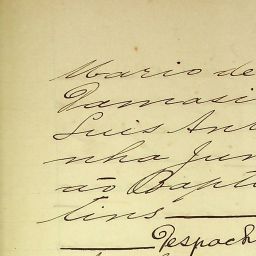 Mario de
Damasi
Luis Ant
nha Jun
ão Bapt
tins
Despach